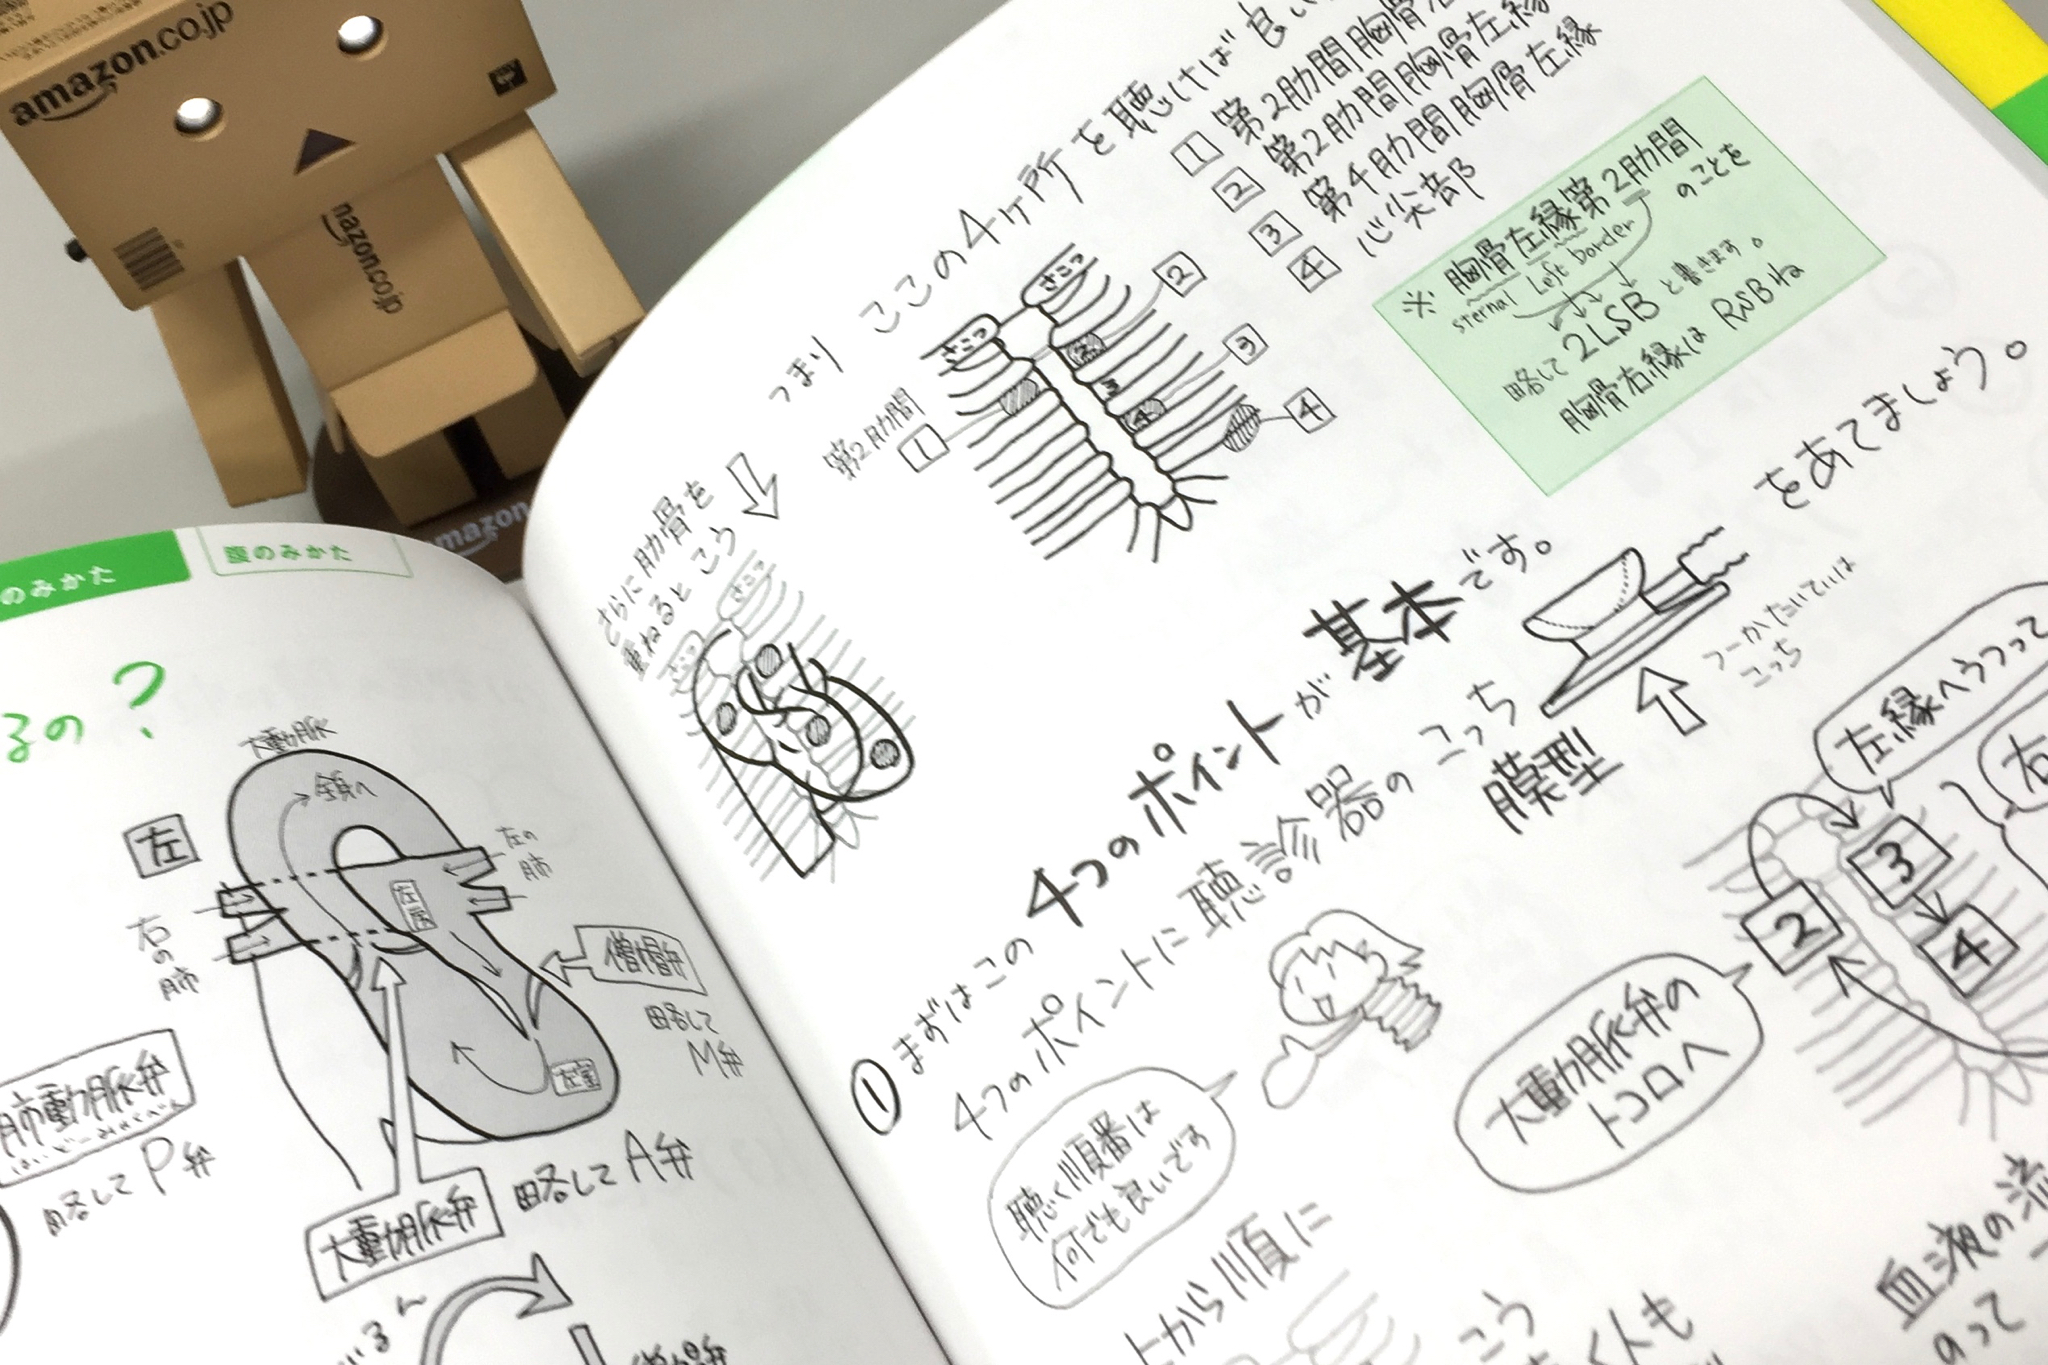 amazon.co.jp
amazon.co.jp
amazon
のみかた
腹のみかた
るの?
大動脈
全身へ
左
左の
肺
右の
肺
左房
僧帽弁
略して
M弁
左室
肺動脈弁
はいどーみゃくべん
略してP弁
大動脈弁
略してA弁
つまり ここの4ヶ所を聴けば良い
1 第2肋間胸骨右
2 第2肋間胸骨左縁
3 第4肋間胸骨左縁
4 心尖部
※胸骨左縁第2肋間のことを
sternal Left border
略して2LSBと書きます。
胸骨右縁はRSBね
さこつ
さこつ
第2肋間
1
2
3
4
2
3
4
さらに肋骨を
重ねるとこう
さこつ
さこつ
①まずはこの4つのポイントが基本です。
4つのポイントに聴診器のこっちをあてましょう。
膜型
つーかだいていは
こっち
聴く順番は
何でも良いです
大動脈弁の
トコロへ
左縁へうつって
右
2
3
4
上から順に
こう
く人も
血液の流
のって